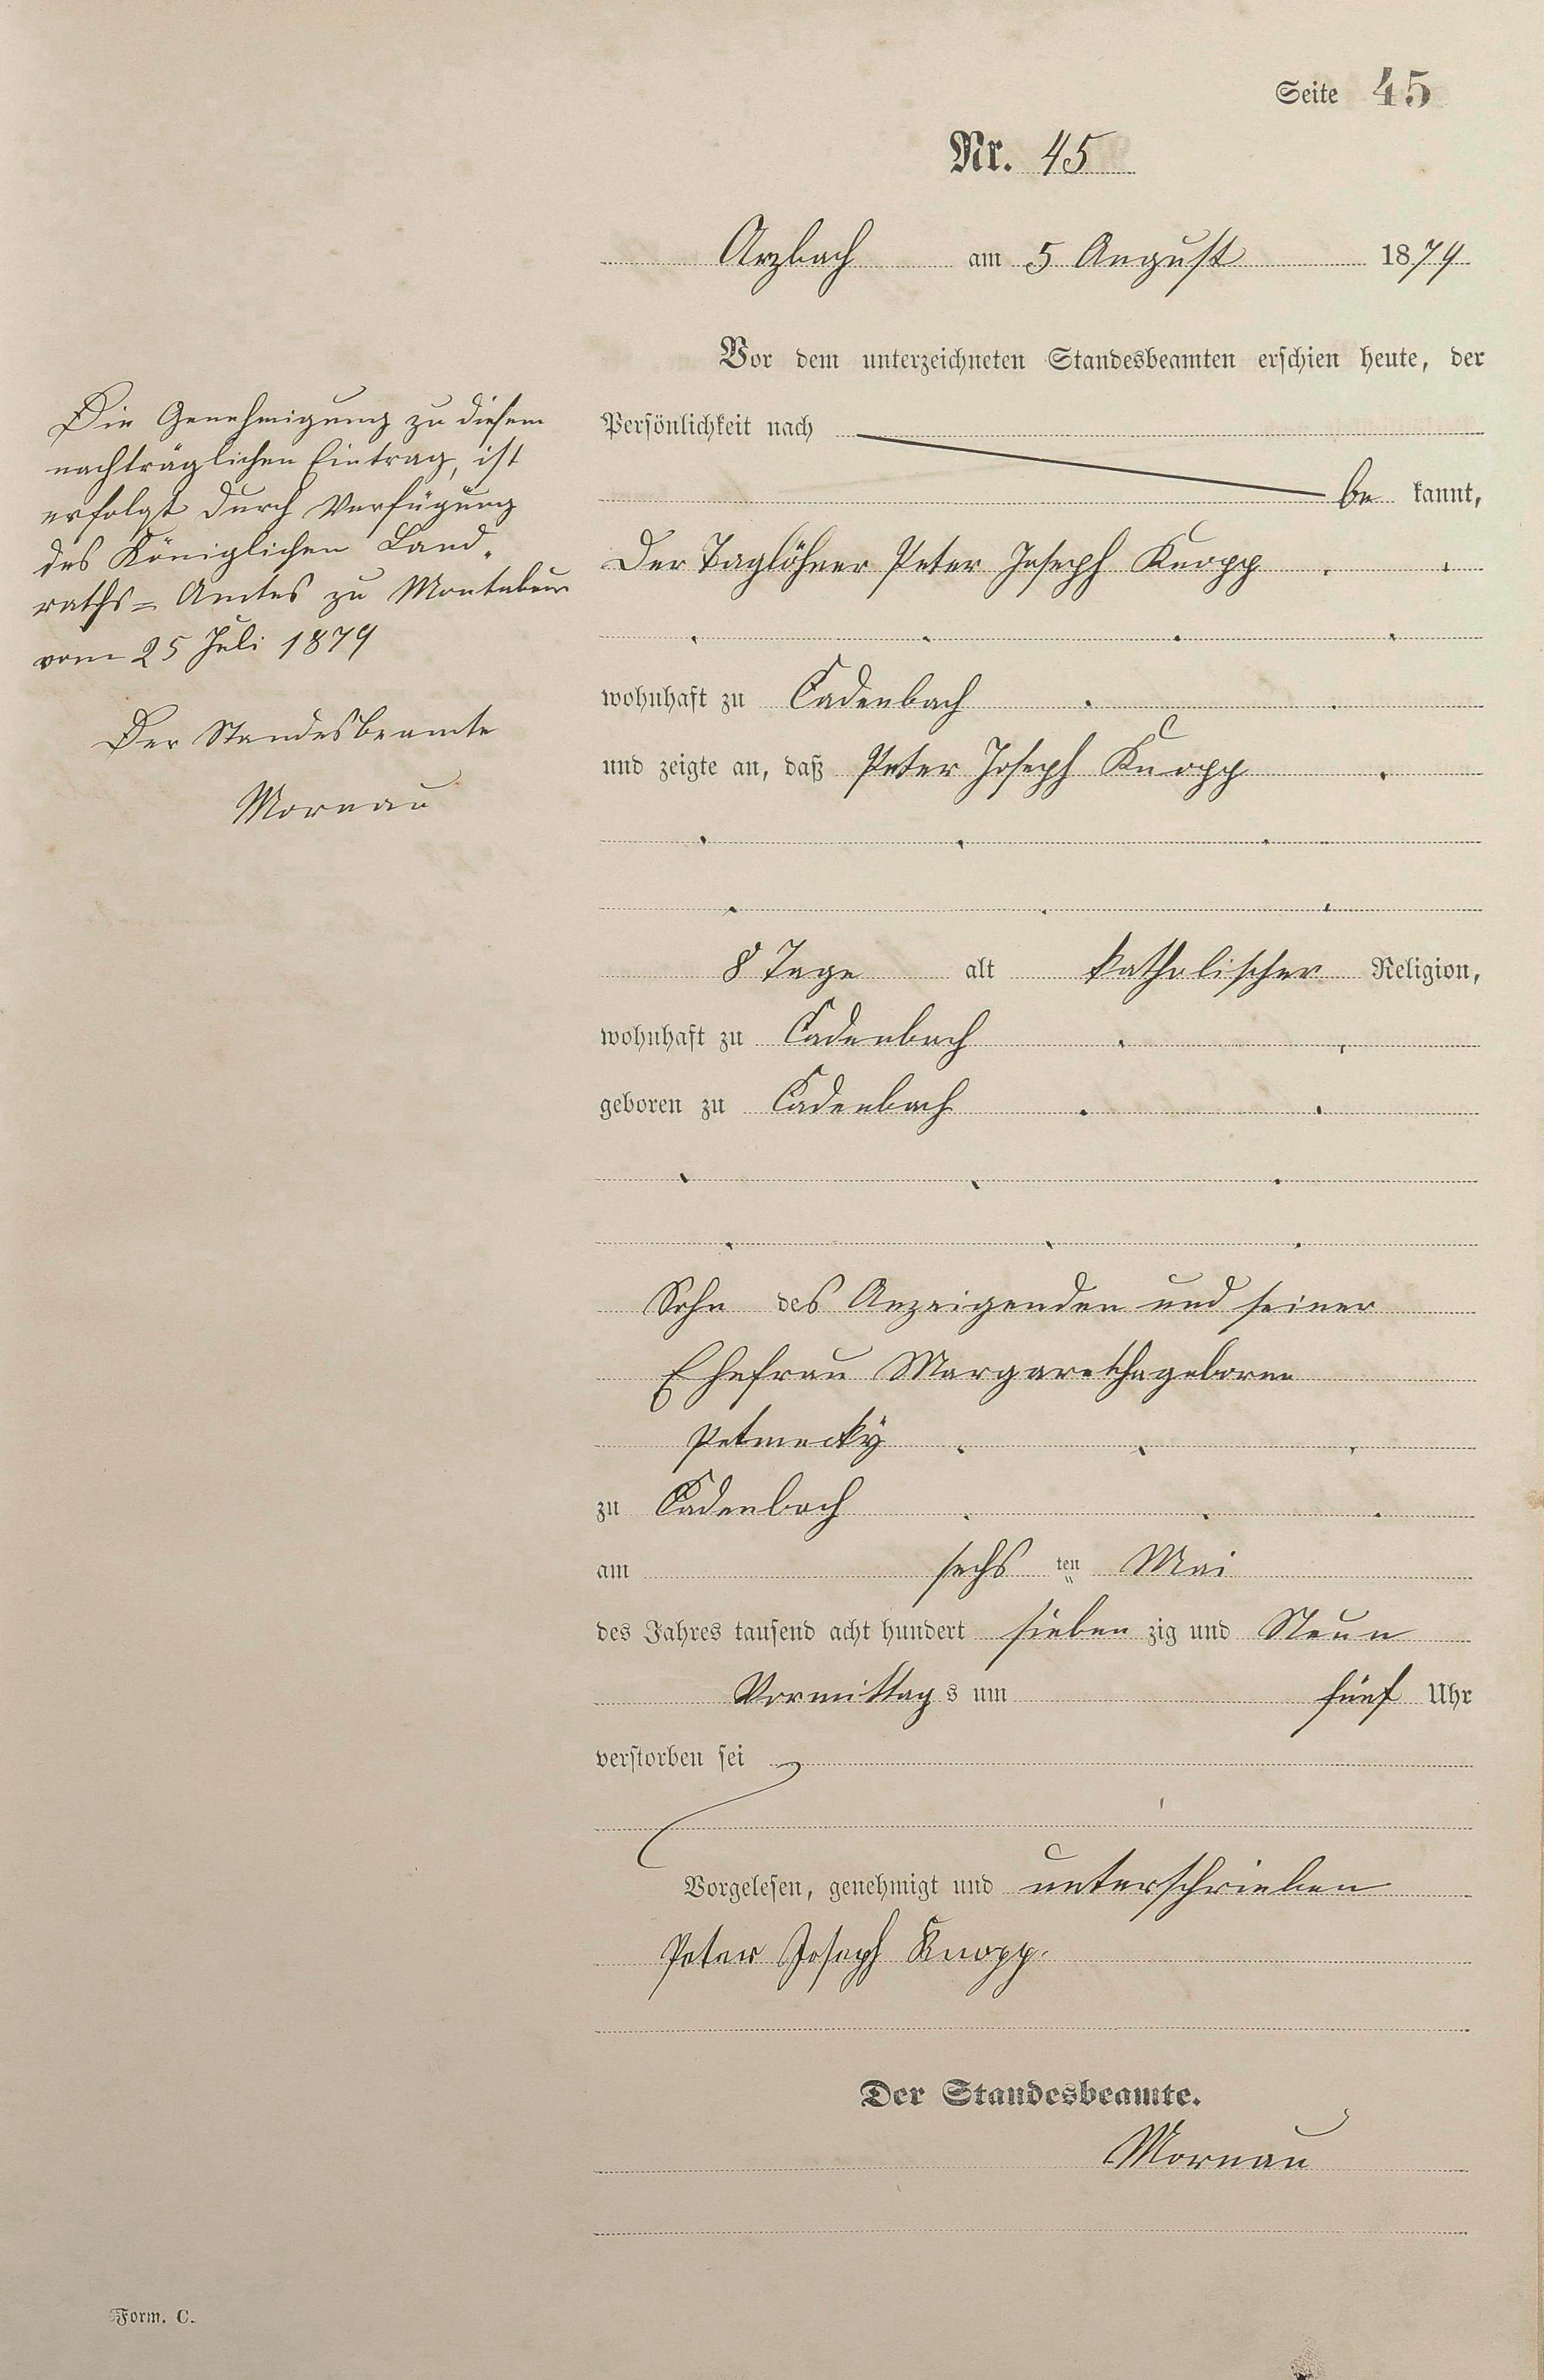 Seite 45
Nr. 45
Arzbach am 5 August 1879
Vor dem unterzeichneten Standesbeamten erschien heute, der
Persönlichkeit nach
be kannt,
Der Taglöhner Peter Joseph Knopp
wohnhaft zu Cadenbach
und zeigte an, daß Peter Joseph Knopp
8 Tage alt katholischer Religion,
wohnhaft zu Cadenbach
geboren zu Cadenbach
Sohn des Anzeigenden und seiner
Ehefrau Margaretha geborne
Petmecky
zu Cadenbach
am sechs ten Mai
des Jahres tausend acht hundert sieben zig und Neun
Vormittag s um fünf Uhr
verstorben sei
Vorgelesen, genehmigt und unterschrieben
Peter Joseph Knopp.
Der Standesbeamte.
Mornau
Die Genehmigung zu diesem
nachträglichen Eintrag, ist
erfolgt durch Verfügung
des Königlichen Land-
raths= Amtes zu Montabaur
vom 25 Juli 1879
Der Standesbeamte
Mornau
Form. C.